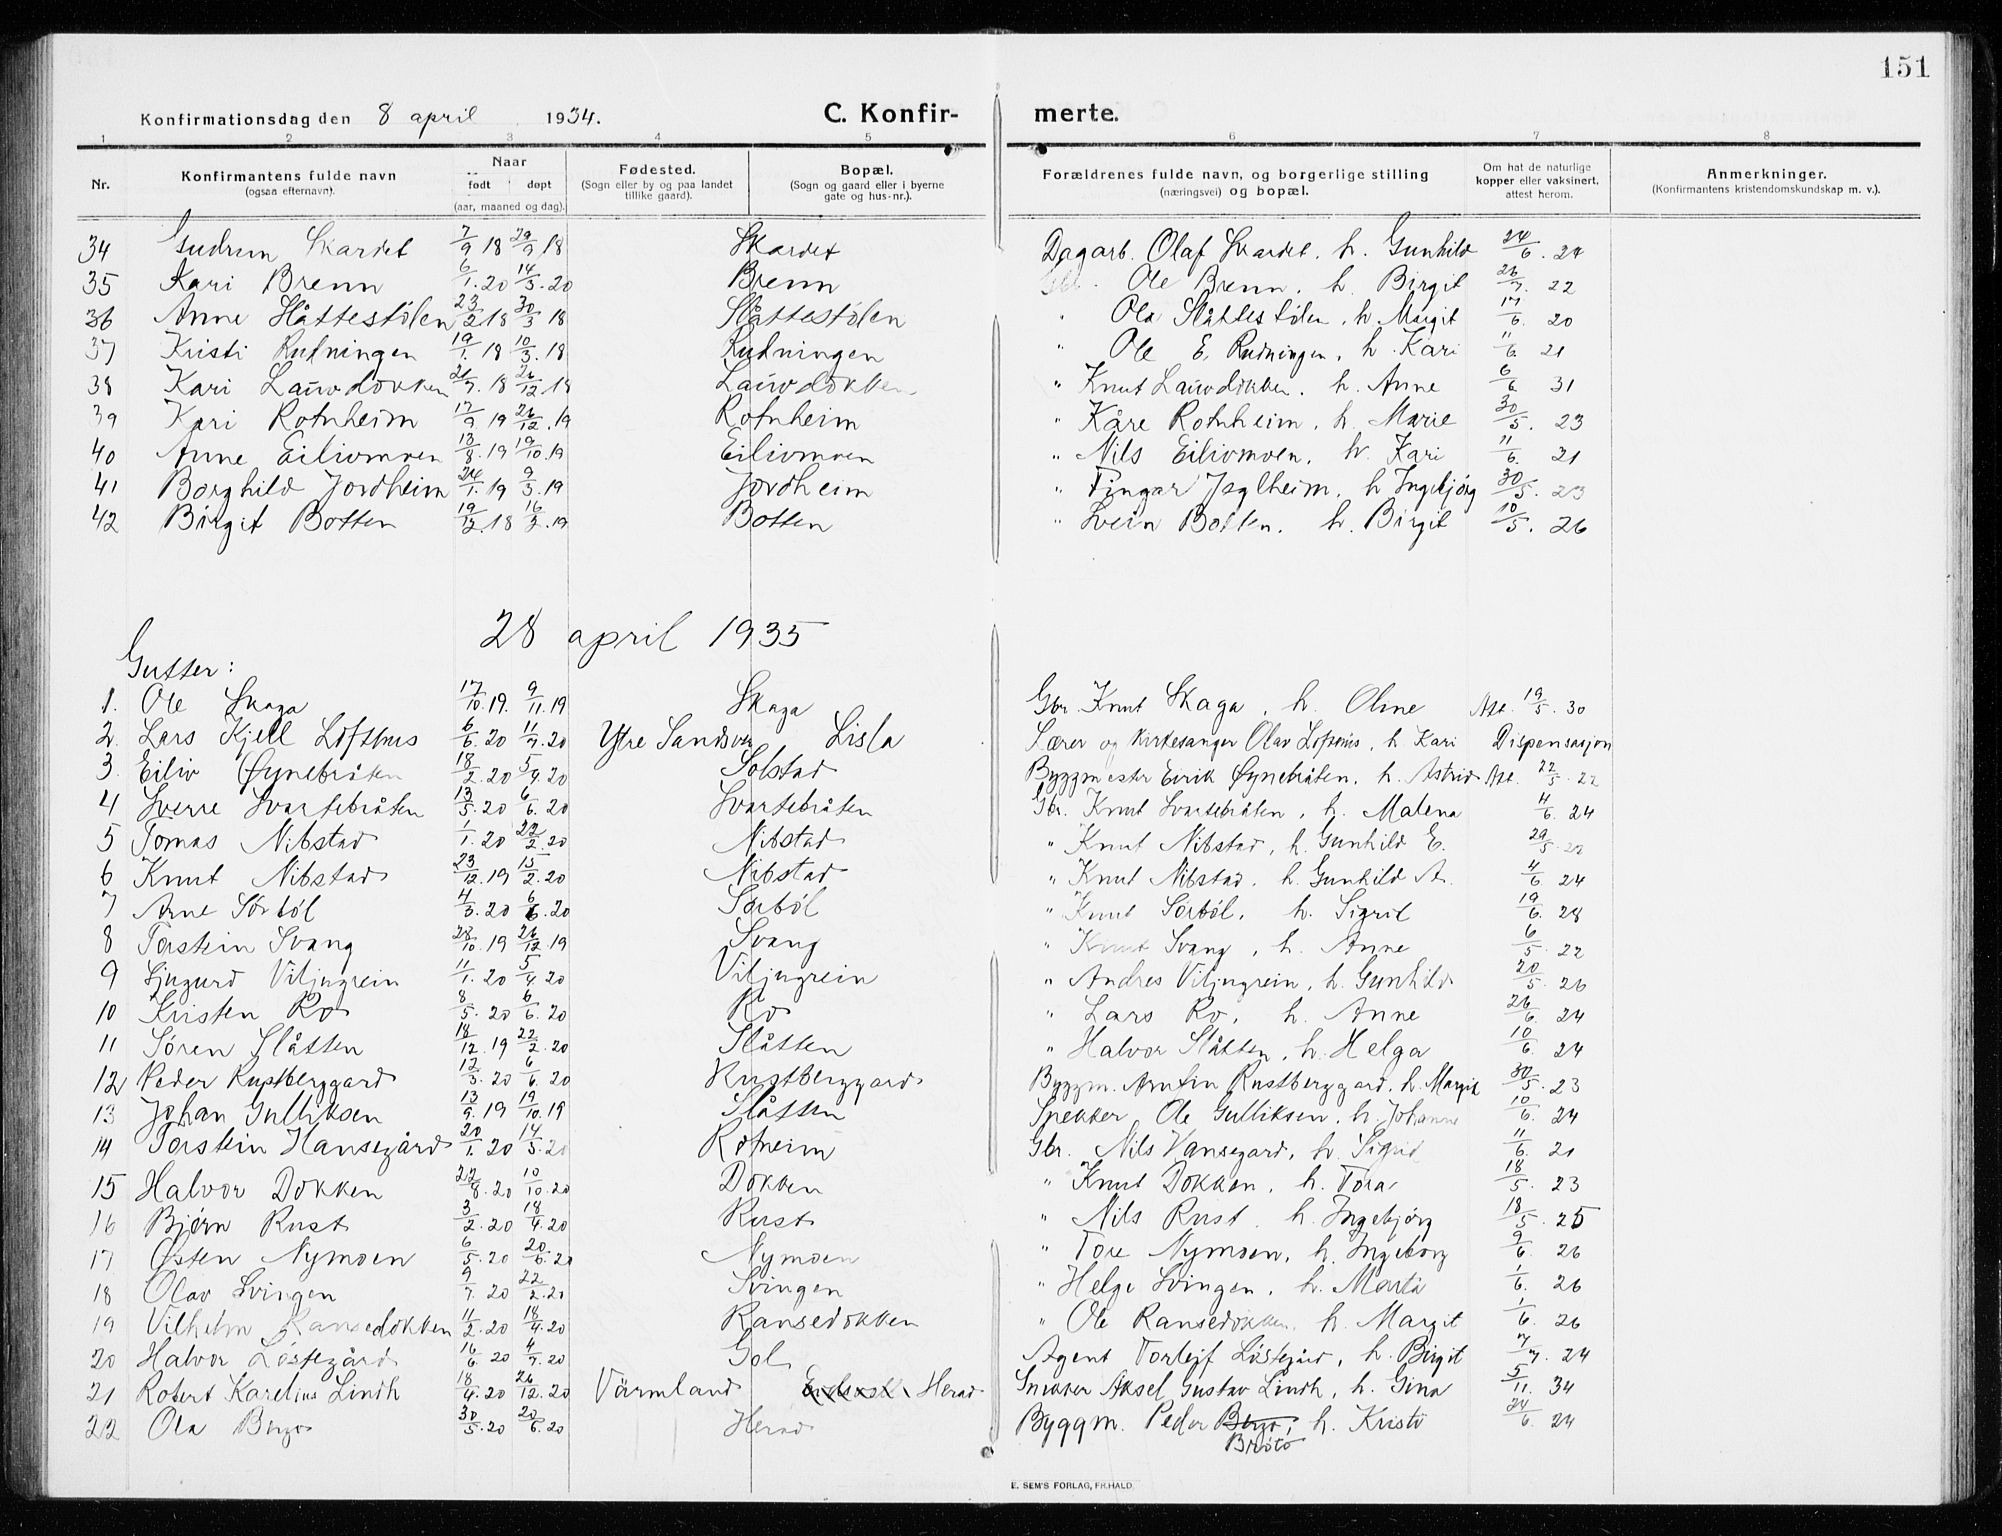 151
Konfirmationsdag den 8 april 1934. C. Konfir- merte.
1 2 3 4 5 6 7 8
Nr. Konfirmantens fulde navn (ogsaa efternavn). Naar født døpt (aar, maaned og dag). Fødested. (Sogn eller by og paa landet tillike gaard). Bopæl. (Sogn og gaard eller i byerne gate og hus-nr.). Forældrenes fulde navn, og borgerlige stilling (næringsvei) og bopæl. Om hat de naturlige kopper eller vaksinert, attest herom. Anmerkninger. (Konfirmantens kristendomskundskap m. v.).
34 Gudrun Skardet 7/9 18 29/9 18 Skardet Dagarb. Olaf Skardet, h. Gunhild 24/6. 24
35 Kari Brenn 6/1. 20 14/3. 20 Brenn Ole Brenn. h. Birgit 26/7. 22
36 Anne Slåttestølen 23/2 18 30/3 18 Slåttestølen " Ola Slåttestølen, h. Margit 17/6. 20
37 Kristi Rudningen 19/1. 18 10/3. 18 Rudningen " Ole E. Rudningen, h. Kari 11/6. 21
38 Kari Lauvdokken 21/7. 18 26/12. 18 Lauvdokken " Knut Lauvdokken. h. Anne 6/6 31
39 Kari Rotnheim 17/9 19 26/12. 19 Rotnheim " Kåre Rotnheim, h. Marie 30/5. 23
40 Anne Eilivmoen 13/8. 19 19/10. 19 Eilivmoen " Nils Eilivmoen, h. Kari 11/6. 21
41 Borghild Jordheim 24/1. 19 9/3. 19 Jordheim " Fingar h Ingebjørg 30/5. 23
42 Birgit Botten 19/12. 18 16/2. 19 Botten " Svein Botten. h. Birgit 10/5. 26
28 april 1935
Gutter:
1. Ole Skaga 17/10. 19. 9/11. 19 Skaga Gbr. Knut Skaga, h. Oline Att. 19/5. 30
2. Lars Kjell Lofthus 6/6. 20 11/7. 20 Ytre Sandsvær Lisla Lærer og kirkesanger Olav Lofthus, h. Kari Dispensasjon
3. Eiliv Øynebråten 18/2. 20 5/4. 20 Solstad Byggmester Eirik Øynebråten, h. Astrid Att. 22/5. 22
4 Sverre Svartebråten 13/5. 20 6/6. 20 Svartebråten Gbr. Knut Svartebråten, h. Malena 4/6. 24
5 Tomas Nibstad 1/1. 20 22/2. 20 Nibstad " Knut Nibstad, h. Gunhild E. 29/5
6 Knut Nibstad 23/12. 19 15/2. 20 Nibstad " Knut Nibstad. h. Gunhild A. 4/6. 24
7 Arne Sørbøl 4/3. 20 6/6. 20 Sørbøl " Knut Sørbøl. h. Sigrid 19/6. 28
8 Torstein Svang 28/10. 19 26/12. 19 Svang " Knut Svang, h. Anne 6/5. 22
9 Sjugurd Viljugrein 11/1. 20 5/4. 20 Viljugrein " Andres Viljugrein, h. Gunhild 20/5. 26
10 Kristen Ro 8/5. 20 6/6. 20 Ro " Lars Ro, h. Anne 26/6. 24
11 Søren Slåtten 18/12. 19 22/2. 20 Slåtten " Halvor Slåtten, h. Helga 10/6. 24
12 Peder Rustberggard 12/3. 20 6/6. 20 Rustberggard Byggm. Arnfin Rustberggard, h. Margit 30/5. 23
13 Johan Gulliksen 13/9. 19 19/10. 19 Slåtten Snekker Ole Gulliksen, h. Johanne 10/6. 24
14 Torstein Hansegård 20/1. 20 14/3. 20 Rotneim Gbr. Nils Hansegard, h. Sigrid 11/6. 21
15 Halvor Dokken 22/8. 20 10/10. 20 Dokken " Knut Dokken, h. Tora 18/5. 23
16 Bjørn Rust 3/2. 20 18/4. 20 Rust " Nils Rust, h. Ingebjørg 18/5. 25
17 Østen Nymoen 6/5. 20 20/6. 20 Nymoen " Tore Nymoen, h. Ingeborg 9/6. 26
18 Olav Svingen 9/7. 20 22/2. 20 Svingen " Helge Svingen, h. Marta 1/6. 26
19 Vilhelm Ransedokken 11/2. 20 18/4. 20 Ransedokken " Ole Ransedokken, h. Margit 1/6. 26
20 Halvor Løstegård 16/6. 20 4/7. 20 Gol Agent Torleif Løstegård, h. Birgit 7/7. 24
21 Robert Karelius Lindh 18/4. 20 26/12. 20 Värmland Herad Snikker Aksel Gustav Lindh, h. Gina 5/11. 34
22 Ola Bergo 30/5. 20 20/6. 20 Herad Byggm. Peder Bergo, h. Kristi 24/6. 24
Bråto
E. SEM'S FORLAG, FR.HALD.